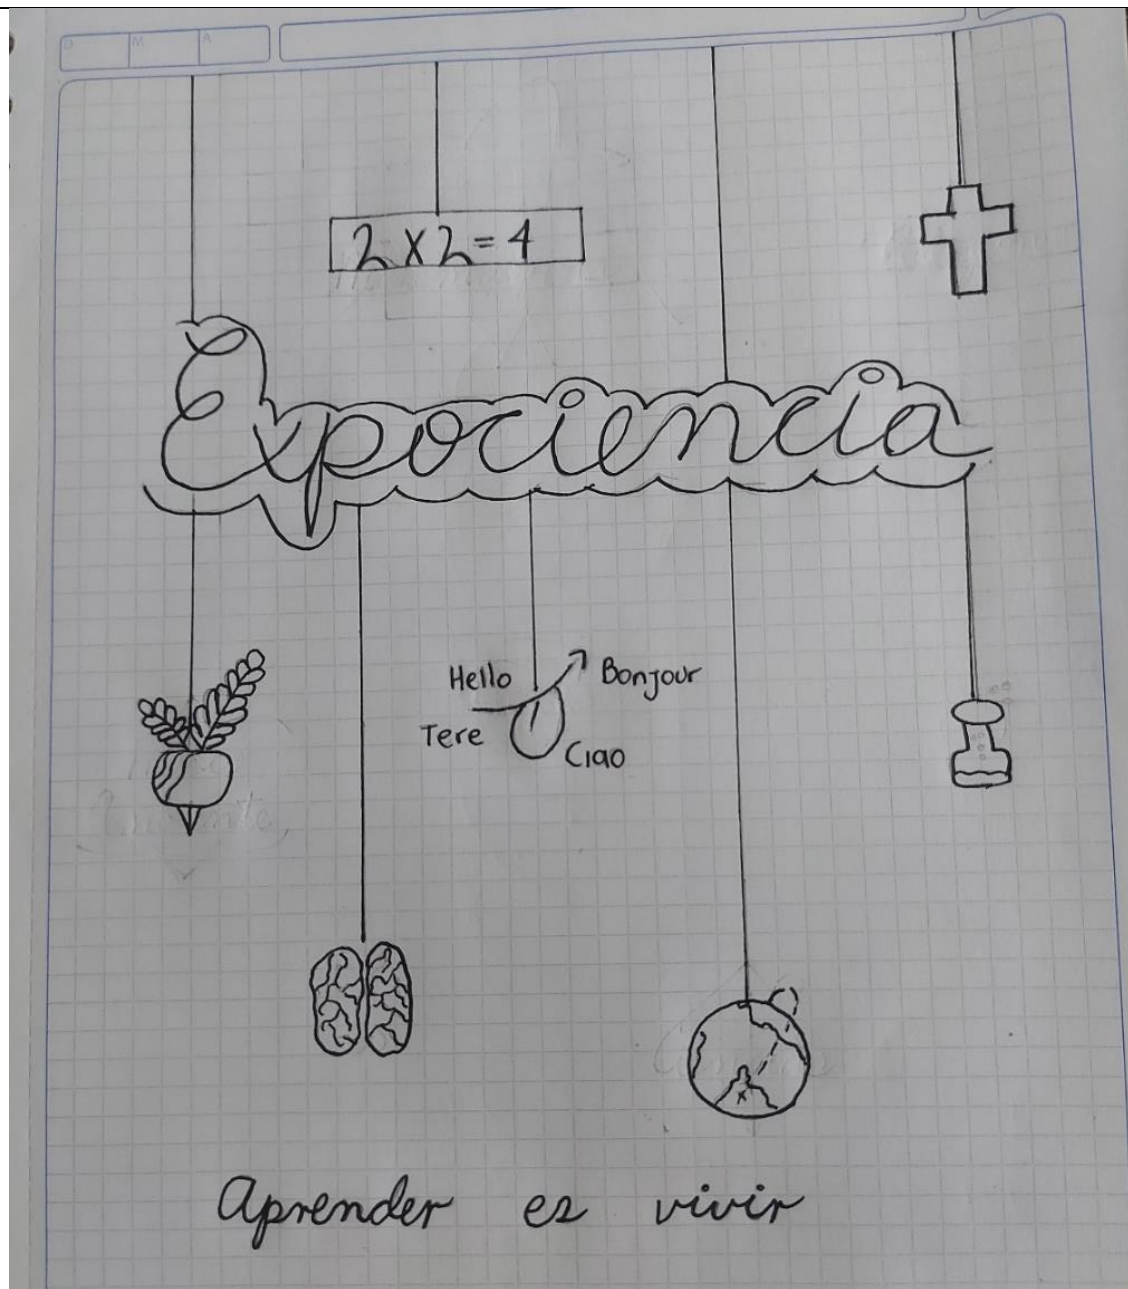 D M A
2 x 2 = 4
Expociencia
Hello Bonjour
Tere Ciao
Aprender es vivir